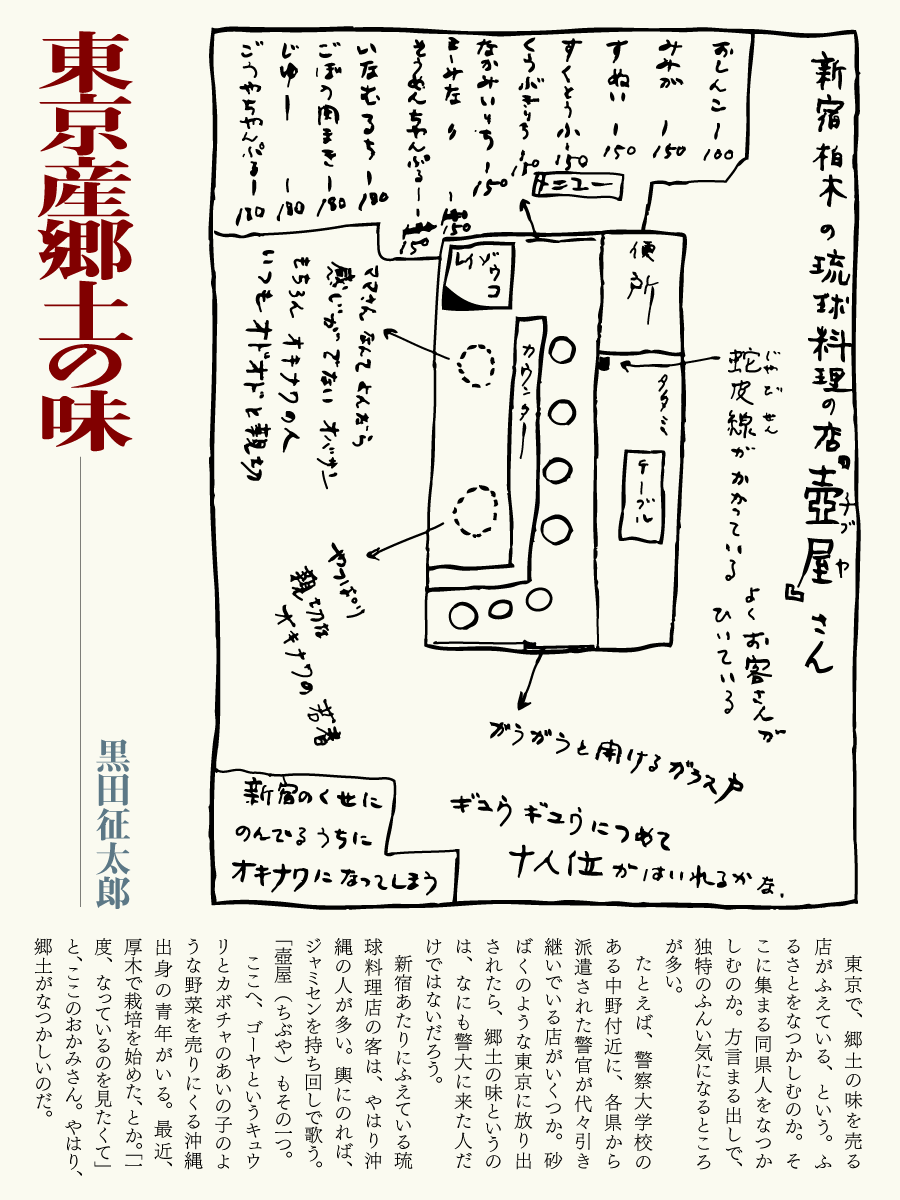 東京産郷土の味
黒田征太郎
新宿柏木の琉球料理の店『壺屋』さん
チブヤ
おしんこー100
みみがー150
すぬいー150
すくとうふー150
くうぶいりちー150
なかみいりちー150
そうめんちゃんぷるー150
いなむるちー180
ごぼう肉まきー180
じゅーしー180
ごうやちゃんぷるー180
メニュー
便所
レイゾウコ
カウンター
タタミ
テーブル
蛇皮線がかかっている
じゃびせん
よくお客さんが
ひいている
ママさんなんてよんだら
感じがでないオバサン
もちろんオキナワの人
いつもオドオドと親切
やっぱり
親切な
オキナワの若者
ガラガラと開けるガラス戸
ギュウギュウにつめて
十人位がはいれるかな.
新宿のくせに
のんでるうちに
オキナワになってしまう
東京で、郷土の味を売る
店がふえている、という。ふ
るさとをなつかしむのか。そ
こに集まる同県人をなつか
しむのか。方言まる出しで、
独特のふんい気になるところ
が多い。
たとえば、警察大学校の
ある中野付近に、各県から
派遣された警官が代々引き
継いでいる店がいくつか。砂
ばくのような東京に放り出
されたら、郷土の味というの
は、なにも警大に来た人だ
けではないだろう。
新宿あたりにふえている琉
球料理店の客は、やはり沖
縄の人が多い。興にのれば、
ジャミセンを持ち回しで歌う。
「壺屋（ちぶや）もその一つ。
ここへ、ゴーヤというキュウ
リとカボチャのあいの子のよ
うな野菜を売りにくる沖縄
出身の青年がいる。最近、
厚木で栽培を始めた、とか。「一
度、なっているのを見たくて」
と、ここのおかみさん。やはり、
郷土がなつかしいのだ。